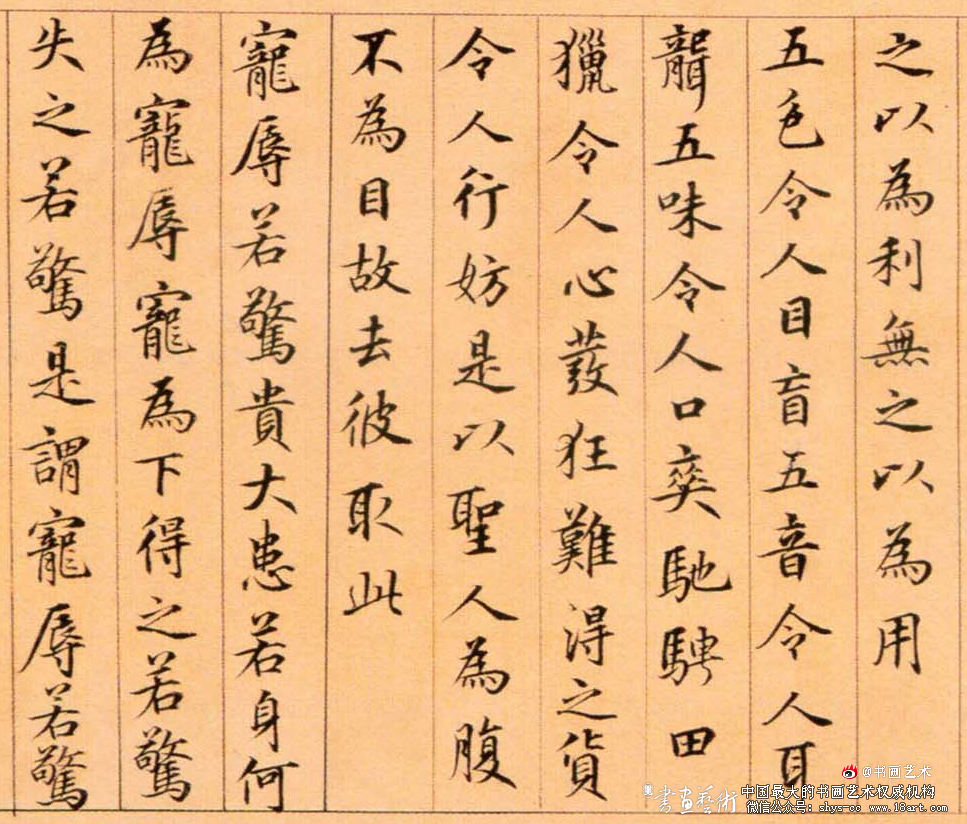 之以為利無之以為用
五色令人目盲五音令人耳
聾五味令人口爽馳騁田
獵令人心發狂難得之貨
令人行妨是以聖人為腹
不為目故去彼取此
寵辱若驚貴大患若身何
為寵辱寵為下得之若驚
失之若驚是謂寵辱若驚
@书画艺术
書画藝術
中国最大的书画艺术权威机构
微信公众号: shys-cc www.18art.com